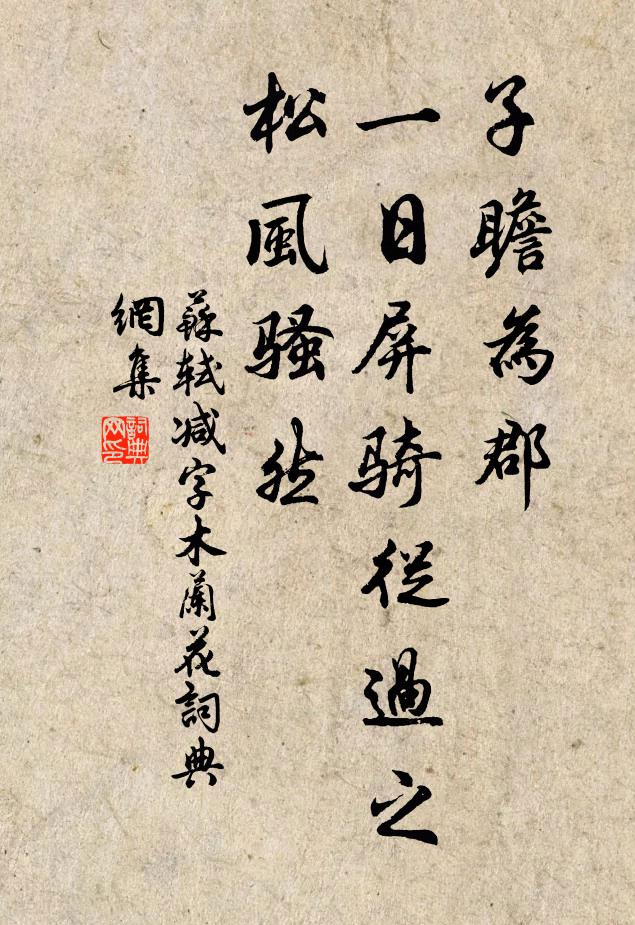 子瞻為郡
一日屏騎從過之
松風騷然
蘇軾减字木蘭花詞典
網集
詞典
网印